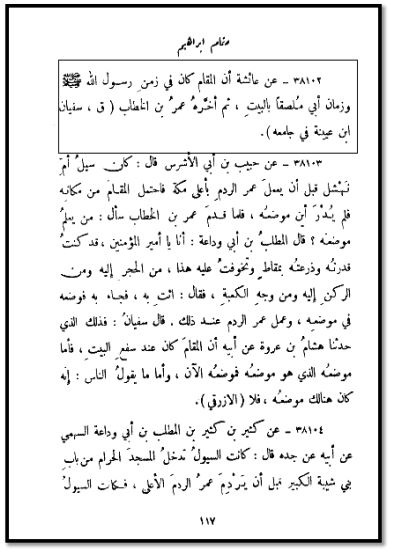 مقام ابراهيم
٣٨١٠٢ ـ عن عائشة أن المقام كان في زمنِ رسول الله ﷺ
وزمان أبي مُلصقاً بالبيتِ ، ثم أخَّرهُ عمرُ بن الخطاب ( ق ، سفيان
ابن عيينة في جامعه ) .
٣٨١٠٣ ـ عن حبيب بن أبي الأشرس قال : كان سيلُ أم
نَهْشل قبل أن يعملَ عمر الردمَ بأعلى مكة فاحتمل المقامَ من مكانهِ
فلم يُدْرَ أين موضعُه ، فلما قدمَ عمر بن الخطاب سأل : من يعلمُ
موضعَه ؟ قال المطلبُ بن أبي وداعة : أنا يا أمير المؤمنين ، قد كنتُ
قدرتُه وذرعتُه بمقاطٍ وتخوفتُ عليه هذا ، من الحجرِ إليه ومن
الركن إليه ومن وجهِ الكعبةِ ، فقال : ائتِ به ، فجاء به فوضعه
في موضعِه ، وعمل عمر الردم عند ذلك . قال سفيانُ : فذلك الذي
حدثنا هشامُ بن عروة عن أبيه أن المقامَ كان عند سفعِ البيتِ ، فأما
موضعُه الذي هو موضعُه فموضعُه الآن ، وأما ما يقولُ الناس : إنه
كان هنالك موضعُه ، فلا ( الازرقي ) .
٣٨١٠٤ ـ عن كثير بن كثير بن المطلب بن أبي وداعة السهمي
عن أبيه عن جده قال : كانت السيولُ تدخلُ المسجدَ الحرام من بابِ
بني شيبة الكبير قبل أن يَرْدِمَ عمرُ الردمَ الأعلى ، فكانت السيولُ
١١٧